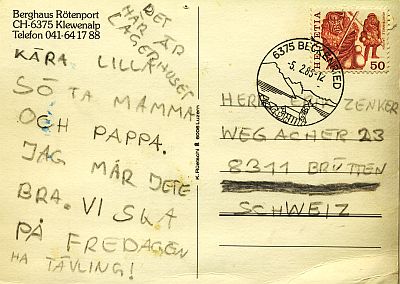 Berghaus Rötenport
CH-6375 Klewenalp
Telefon 041-64 17 88
DET
HÄR ÄR
LÄGERHUSET
KÄRA LILLA
SÖTA MAMMA
OCH PAPPA.
JAG MÅR JETE
BRA. VI SKA
PÅ FREDAGEN
HA TÄVLING!
6005 Luzern
HELVETIA
50
6375 BECKENRIED
-5. 2.85-12
HERR
ZENKER
WEGACHER 23
8311 BRÜTTEN
SCHWEIZ